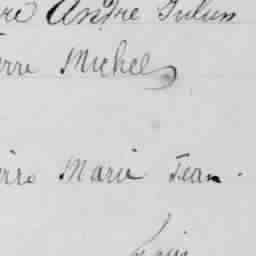 re André Julien
erre Michel
erre Marie Jean.